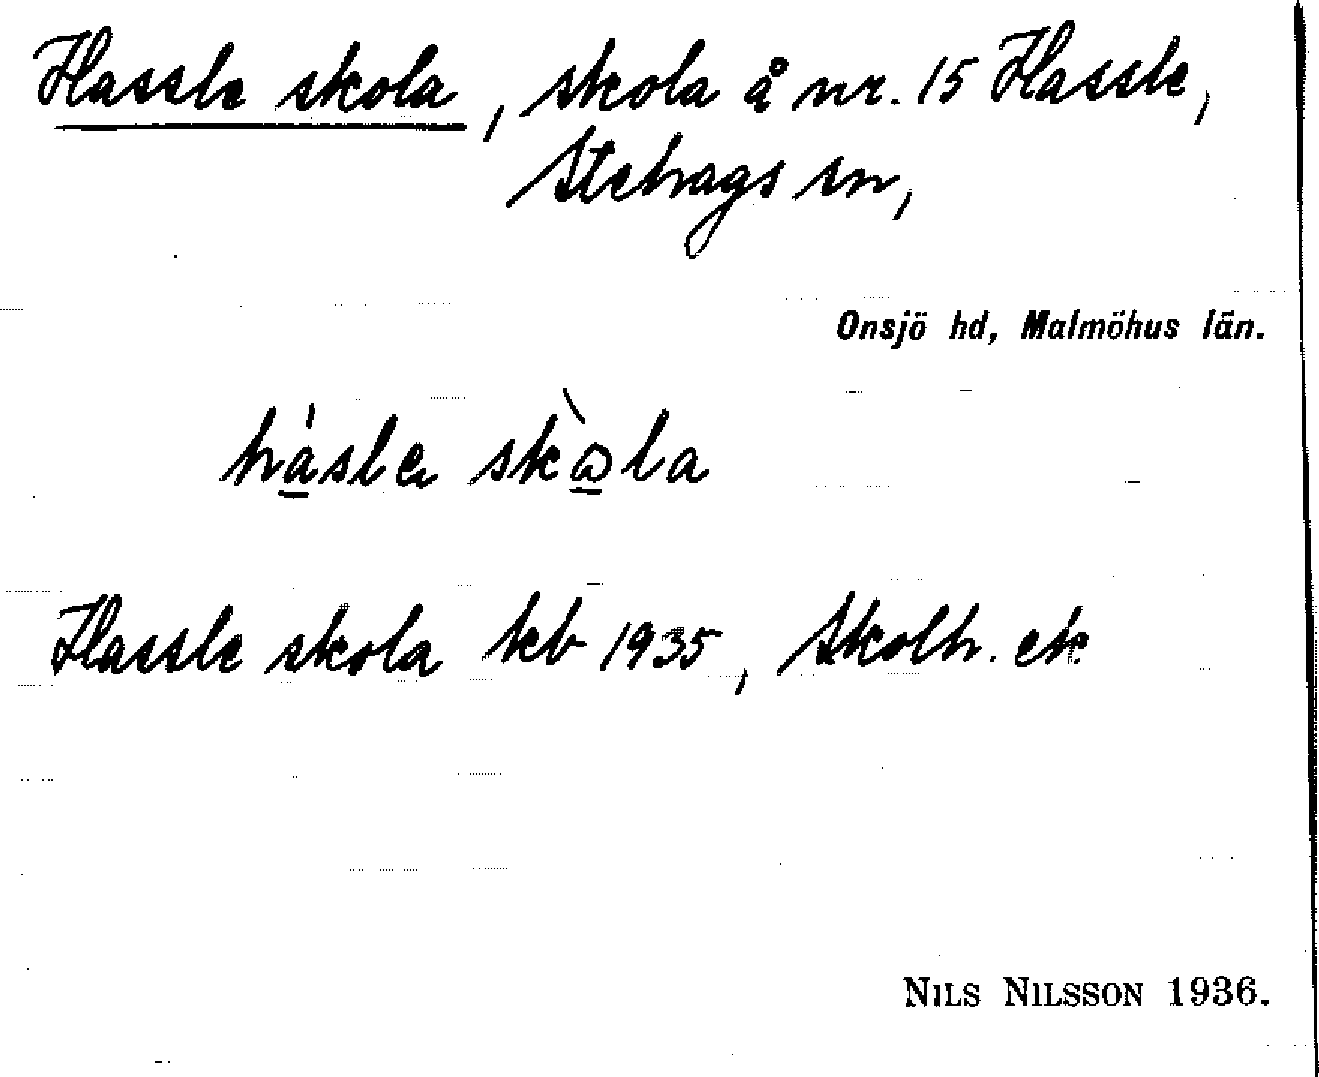 Hassle skola, skola å nr. 15 Hassle,
Stehags sn,
Onsjö hd, Malmöhus län.
hásle skòla
Hassle skola kb 1935, Skolh. ek
NILS NILSSON 1936.